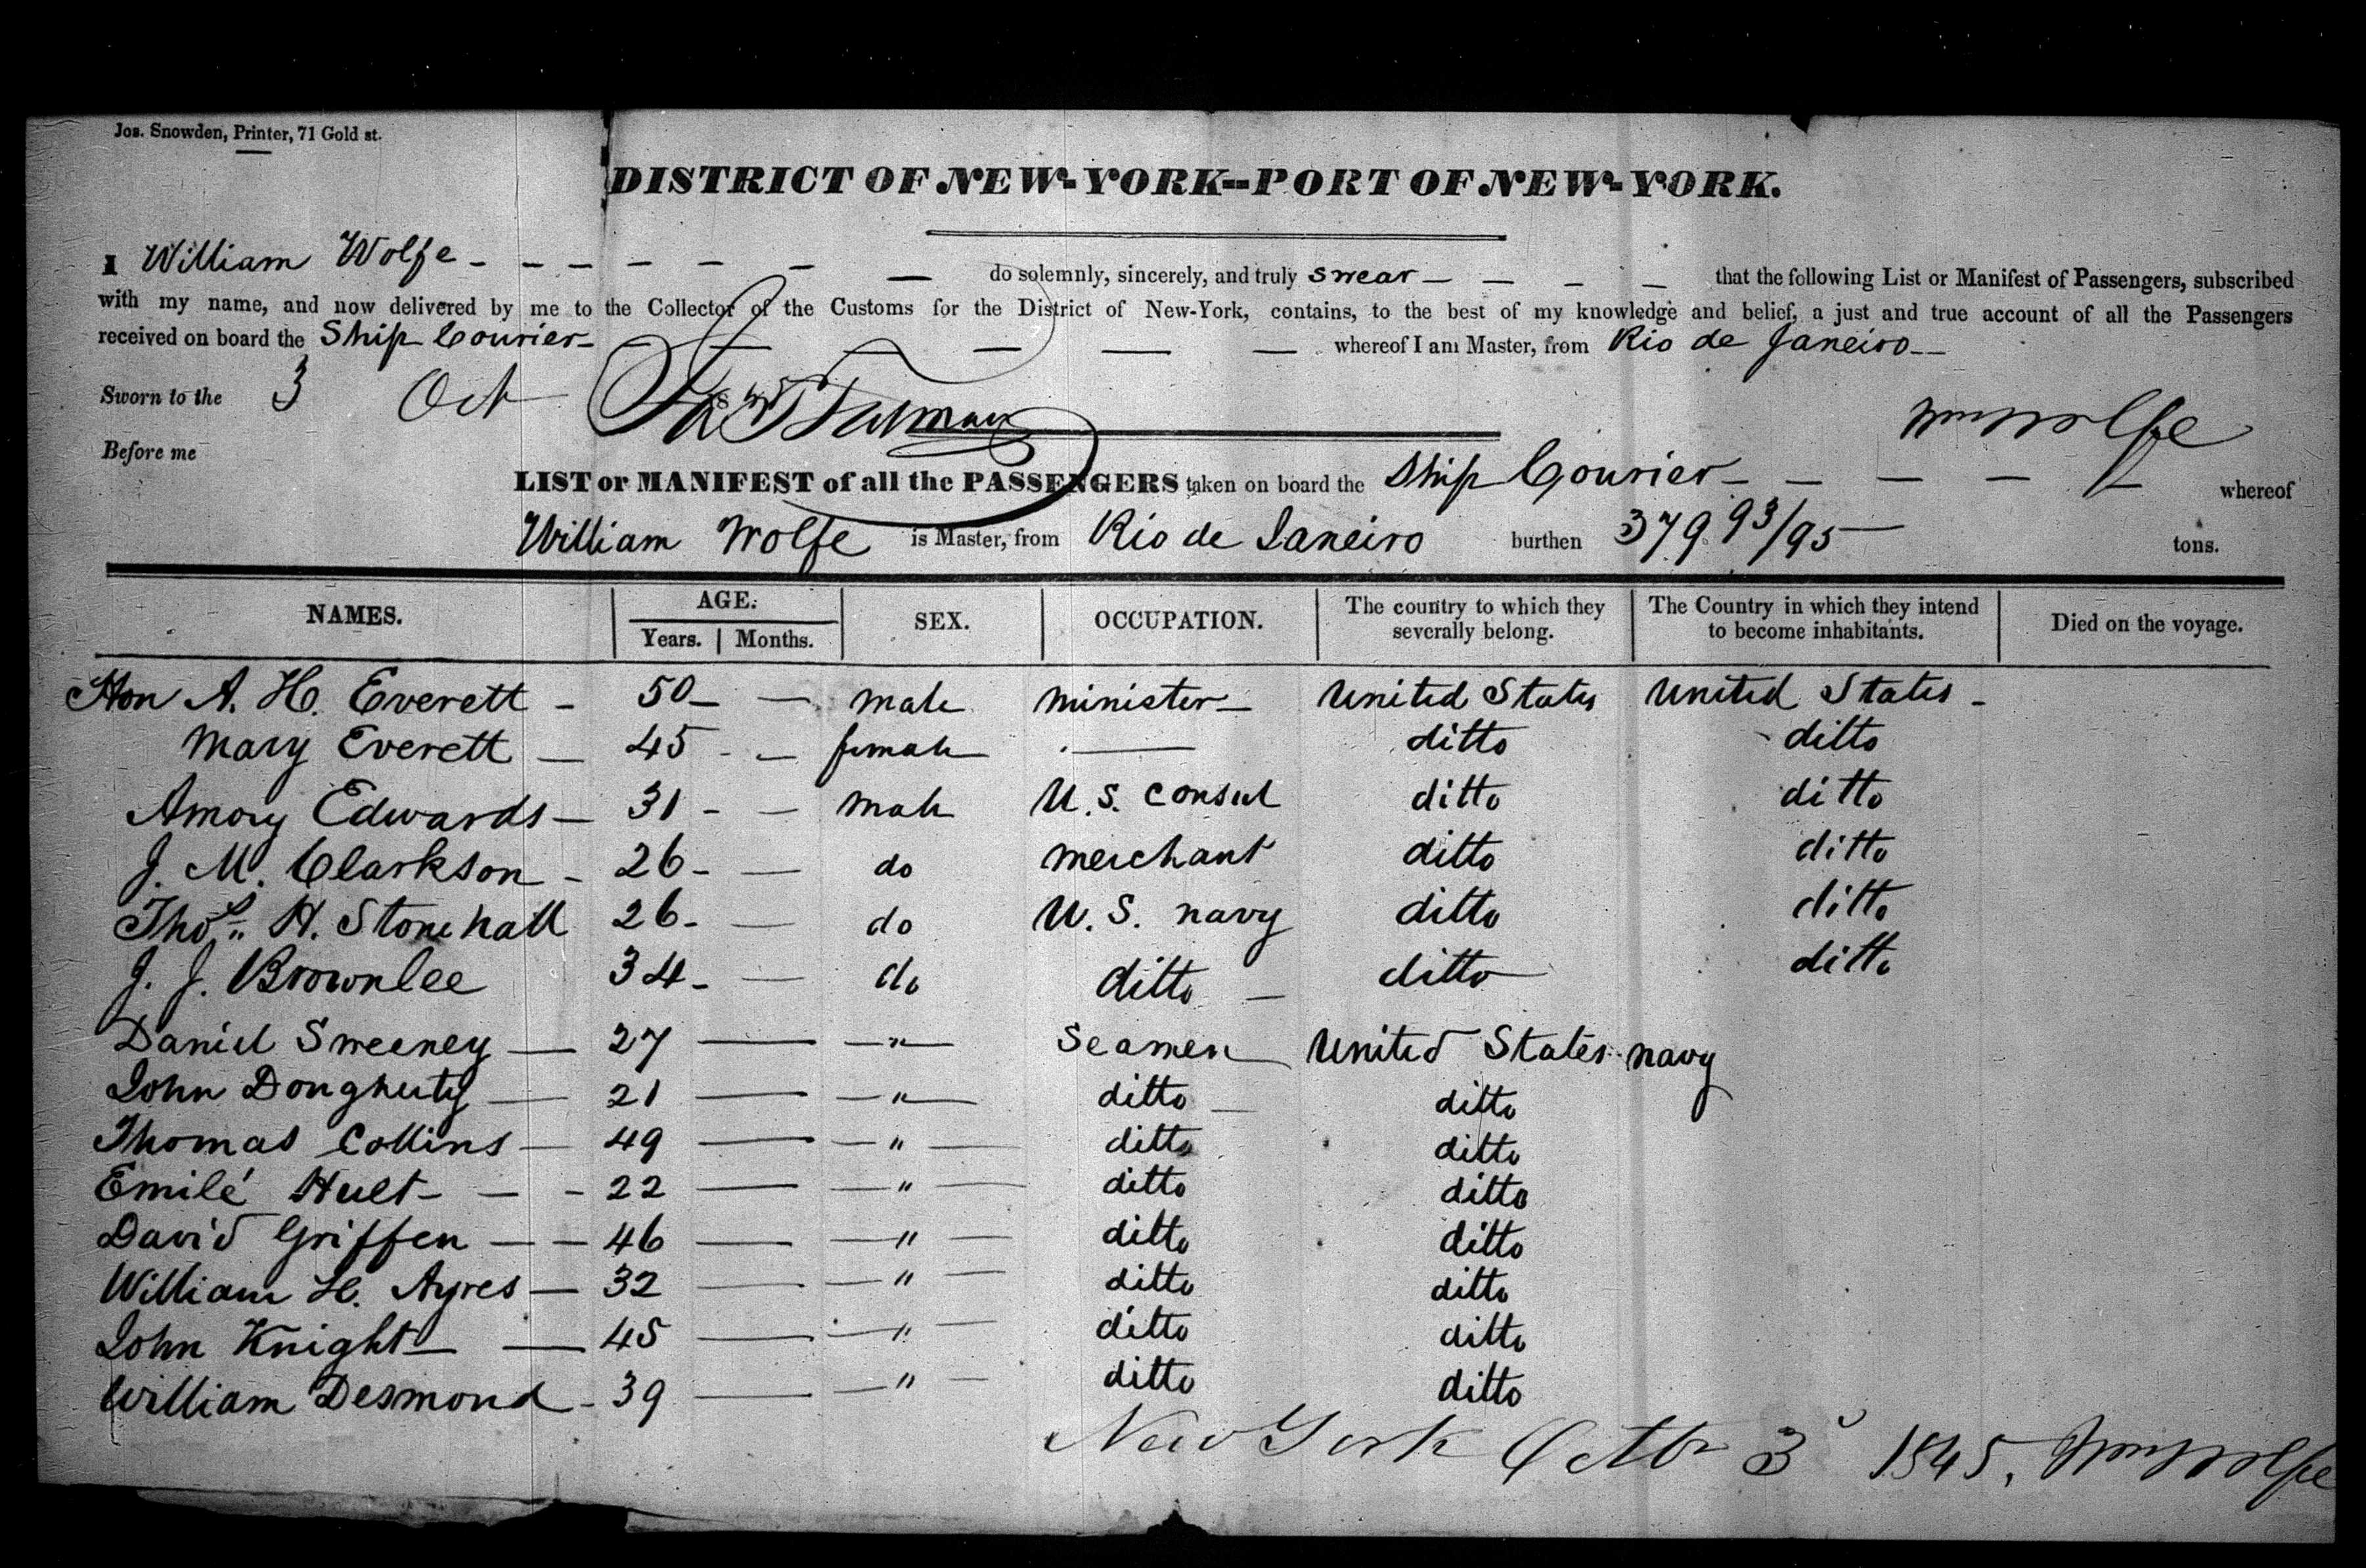 Jos. Snowden, Printer, 71 Gold st.
DISTRICT OF NEW-YORK--PORT OF NEW-YORK.
I William Wolfe - - - - - - - do solemnly, sincerely, and truly swear - - - - that the following List or Manifest of Passengers, subscribed
with my name, and now delivered by me to the Collector of the Customs for the District of New-York, contains, to the best of my knowledge and belief, a just and true account of all the Passengers
received on board the Ship Courier - - - - - - whereof I am Master, from Rio de Janeiro --
Sworn to the 3 Oct
Wm Wolfe
Before me
LIST or MANIFEST of all the PASSENGERS taken on board the Ship Courier - - - - - whereof
William Wolfe is Master, from Rio de Janeiro burthen 379 93/95 - tons.
NAMES. AGE: Years. Months. SEX. OCCUPATION. The country to which they severally belong. The Country in which they intend to become inhabitants. Died on the voyage.
Hon A. H. Everett - 50 - - male minister - United States United States -
Mary Everett - 45 - - female - ditto ditto
Amory Edwards - 31 - - male U.S. Consul ditto ditto
J. M. Clarkson - 26 - - do merchant ditto ditto
Thos H. Stonehall 26 - - do U.S. navy ditto ditto
J. J. Brownlee 34 - - do ditto - ditto ditto
Daniel Sweeney - 27 - - " - Seamen United States navy
John Dougherty - 21 - - " - ditto - ditto
Thomas Collins - 49 - - " - ditto ditto
Emilé Huet - - - 22 - - " - ditto ditto
David Griffen - - 46 - - " - ditto ditto
William H. Ayres - 32 - - " - ditto ditto
John Knight - - 45 - - " - ditto ditto
William Desmond - 39 - - " - ditto ditto
New York Octbr 3d 1845, Wm Wolfe